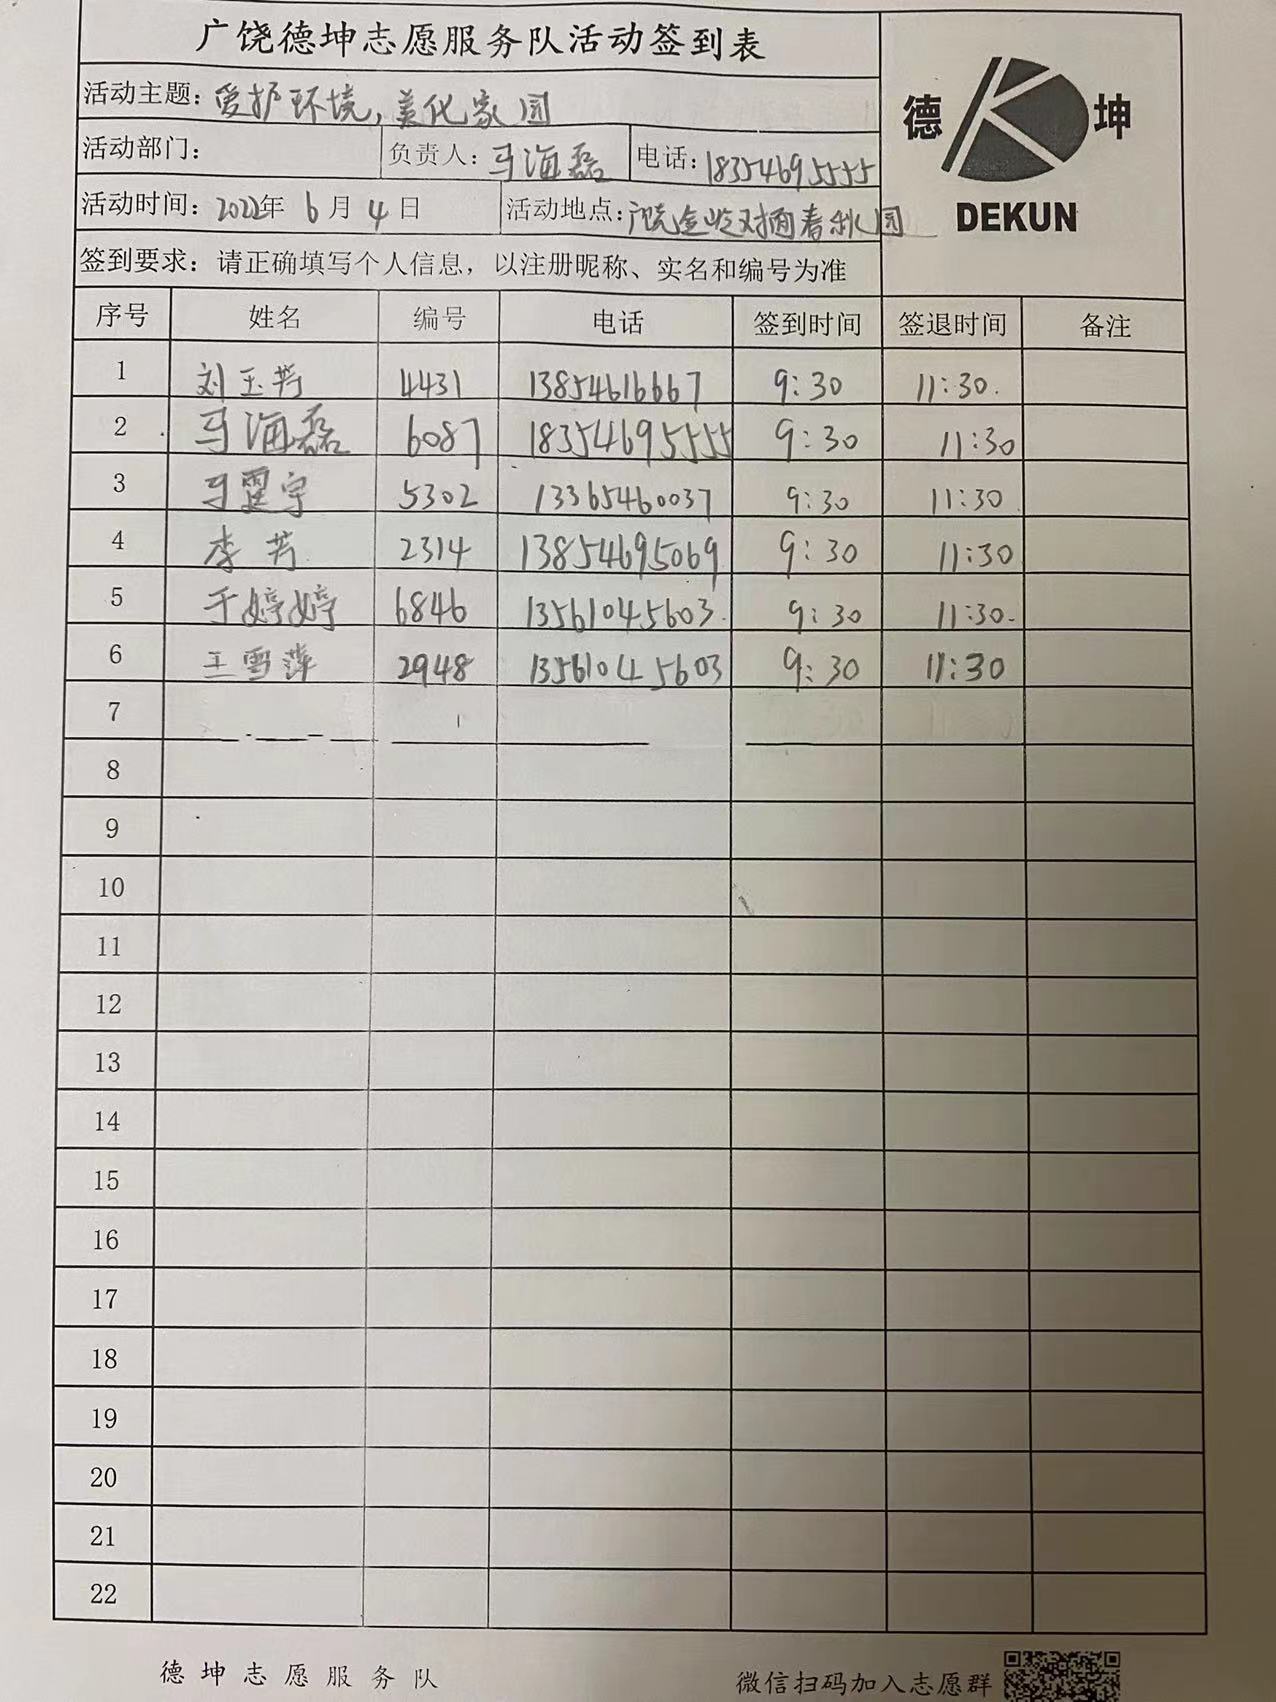 广饶德坤志愿服务队活动签到表
德 坤
DEKUN
活动主题：爱护环境，美化家园
活动部门： 负责人：马海磊 电话：18354695555
活动时间：2022年 6月4日 活动地点：广饶金岭对面春秋园
签到要求：请正确填写个人信息，以注册昵称、实名和编号为准
序号 姓名 编号 电话 签到时间 签退时间 备注
1 刘玉芳 4431 13854616667 9:30 11:30.
2 马海磊 6087 18354695555 9:30 11:30
3 马霆宇 5302 13365460037 9:30 11:30
4 李芳 2314 13854695069 9:30 11:30
5 于婷婷 6846 13561045603. 9:30 11:30.
6 王雪萍 2948 13561045603 9:30 11:30
7
8
9
10
11
12
13
14
15
16
17
18
19
20
21
22
德坤志愿服务队 微信扫码加入志愿群